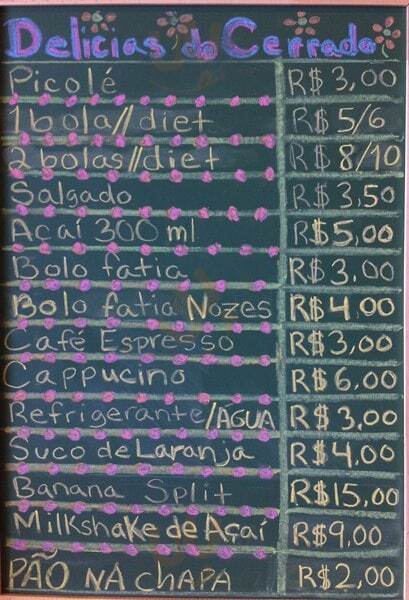 Delicias do Cerrado
Picolé R$ 3,00
1 bola//diet R$ 5/6
2 bolas//diet R$ 8/10
Salgado R$ 3,50
Açaí 300 ml R$ 5,00
Bolo fatia R$ 3,00
Bolo fatia Nozes R$ 4,00
Café Espresso R$ 3,00
Cappucino R$ 6,00
Refrigerante/AGUA R$ 3,00
Suco de Laranja R$ 4,00
Banana Split R$ 15,00
Milkshake de Açaí R$ 9,00
PÃO NA chAPA R$ 2,00